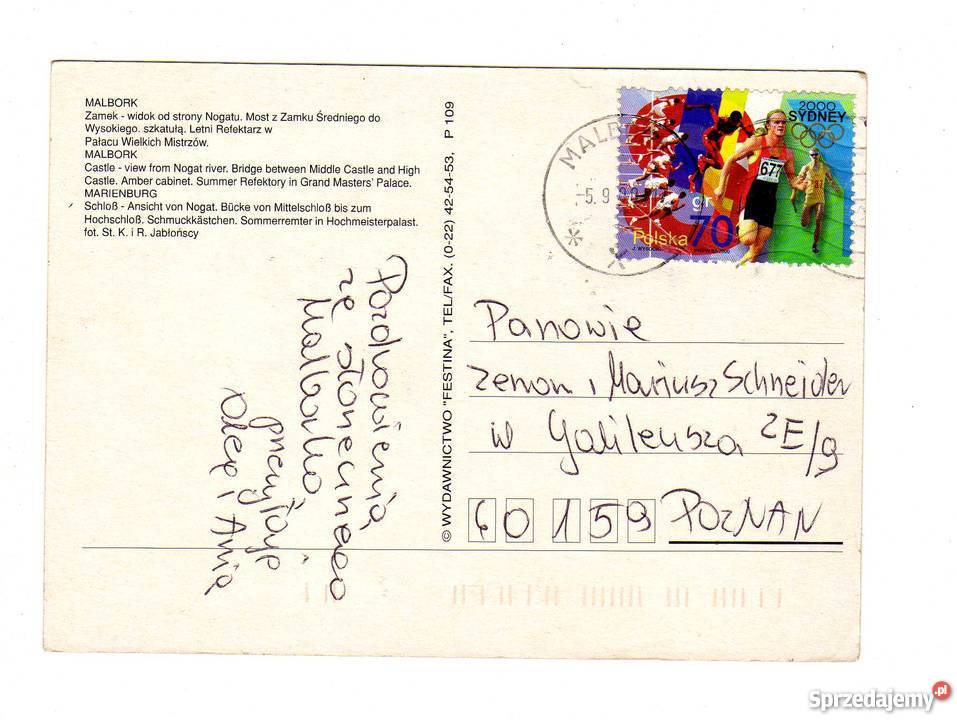 MALBORK
Zamek - widok od strony Nogatu. Most z Zamku Średniego do
Wysokiego. szkatułą. Letni Refektarz w
Pałacu Wielkich Mistrzów.
MALBORK
Castle - view from Nogat river. Bridge between Middle Castle and High
Castle. Amber cabinet. Summer Refektory in Grand Masters' Palace.
MARIENBURG
Schloß - Ansicht von Nogat. Bücke von Mittelschloß bis zum
Hochschloß. Schmuckkästchen. Sommerremter in Hochmeisterpalast.
fot. St. K. i R. Jabłońscy
Pozdrowienia
ze słonecznego
Malborka
przesyłają
Olek i Ania
© WYDAWNICTWO "FESTINA", TEL/FAX. (0-22) 42-54-53, P 109
MALB
5.9
2000
SYDNEY
677
gr
Polska 70
Panowie
Zenon i Mariusz Schneider
w Galileusza 2E/9
60 159 POZNAN
Sprzedajemy.pl